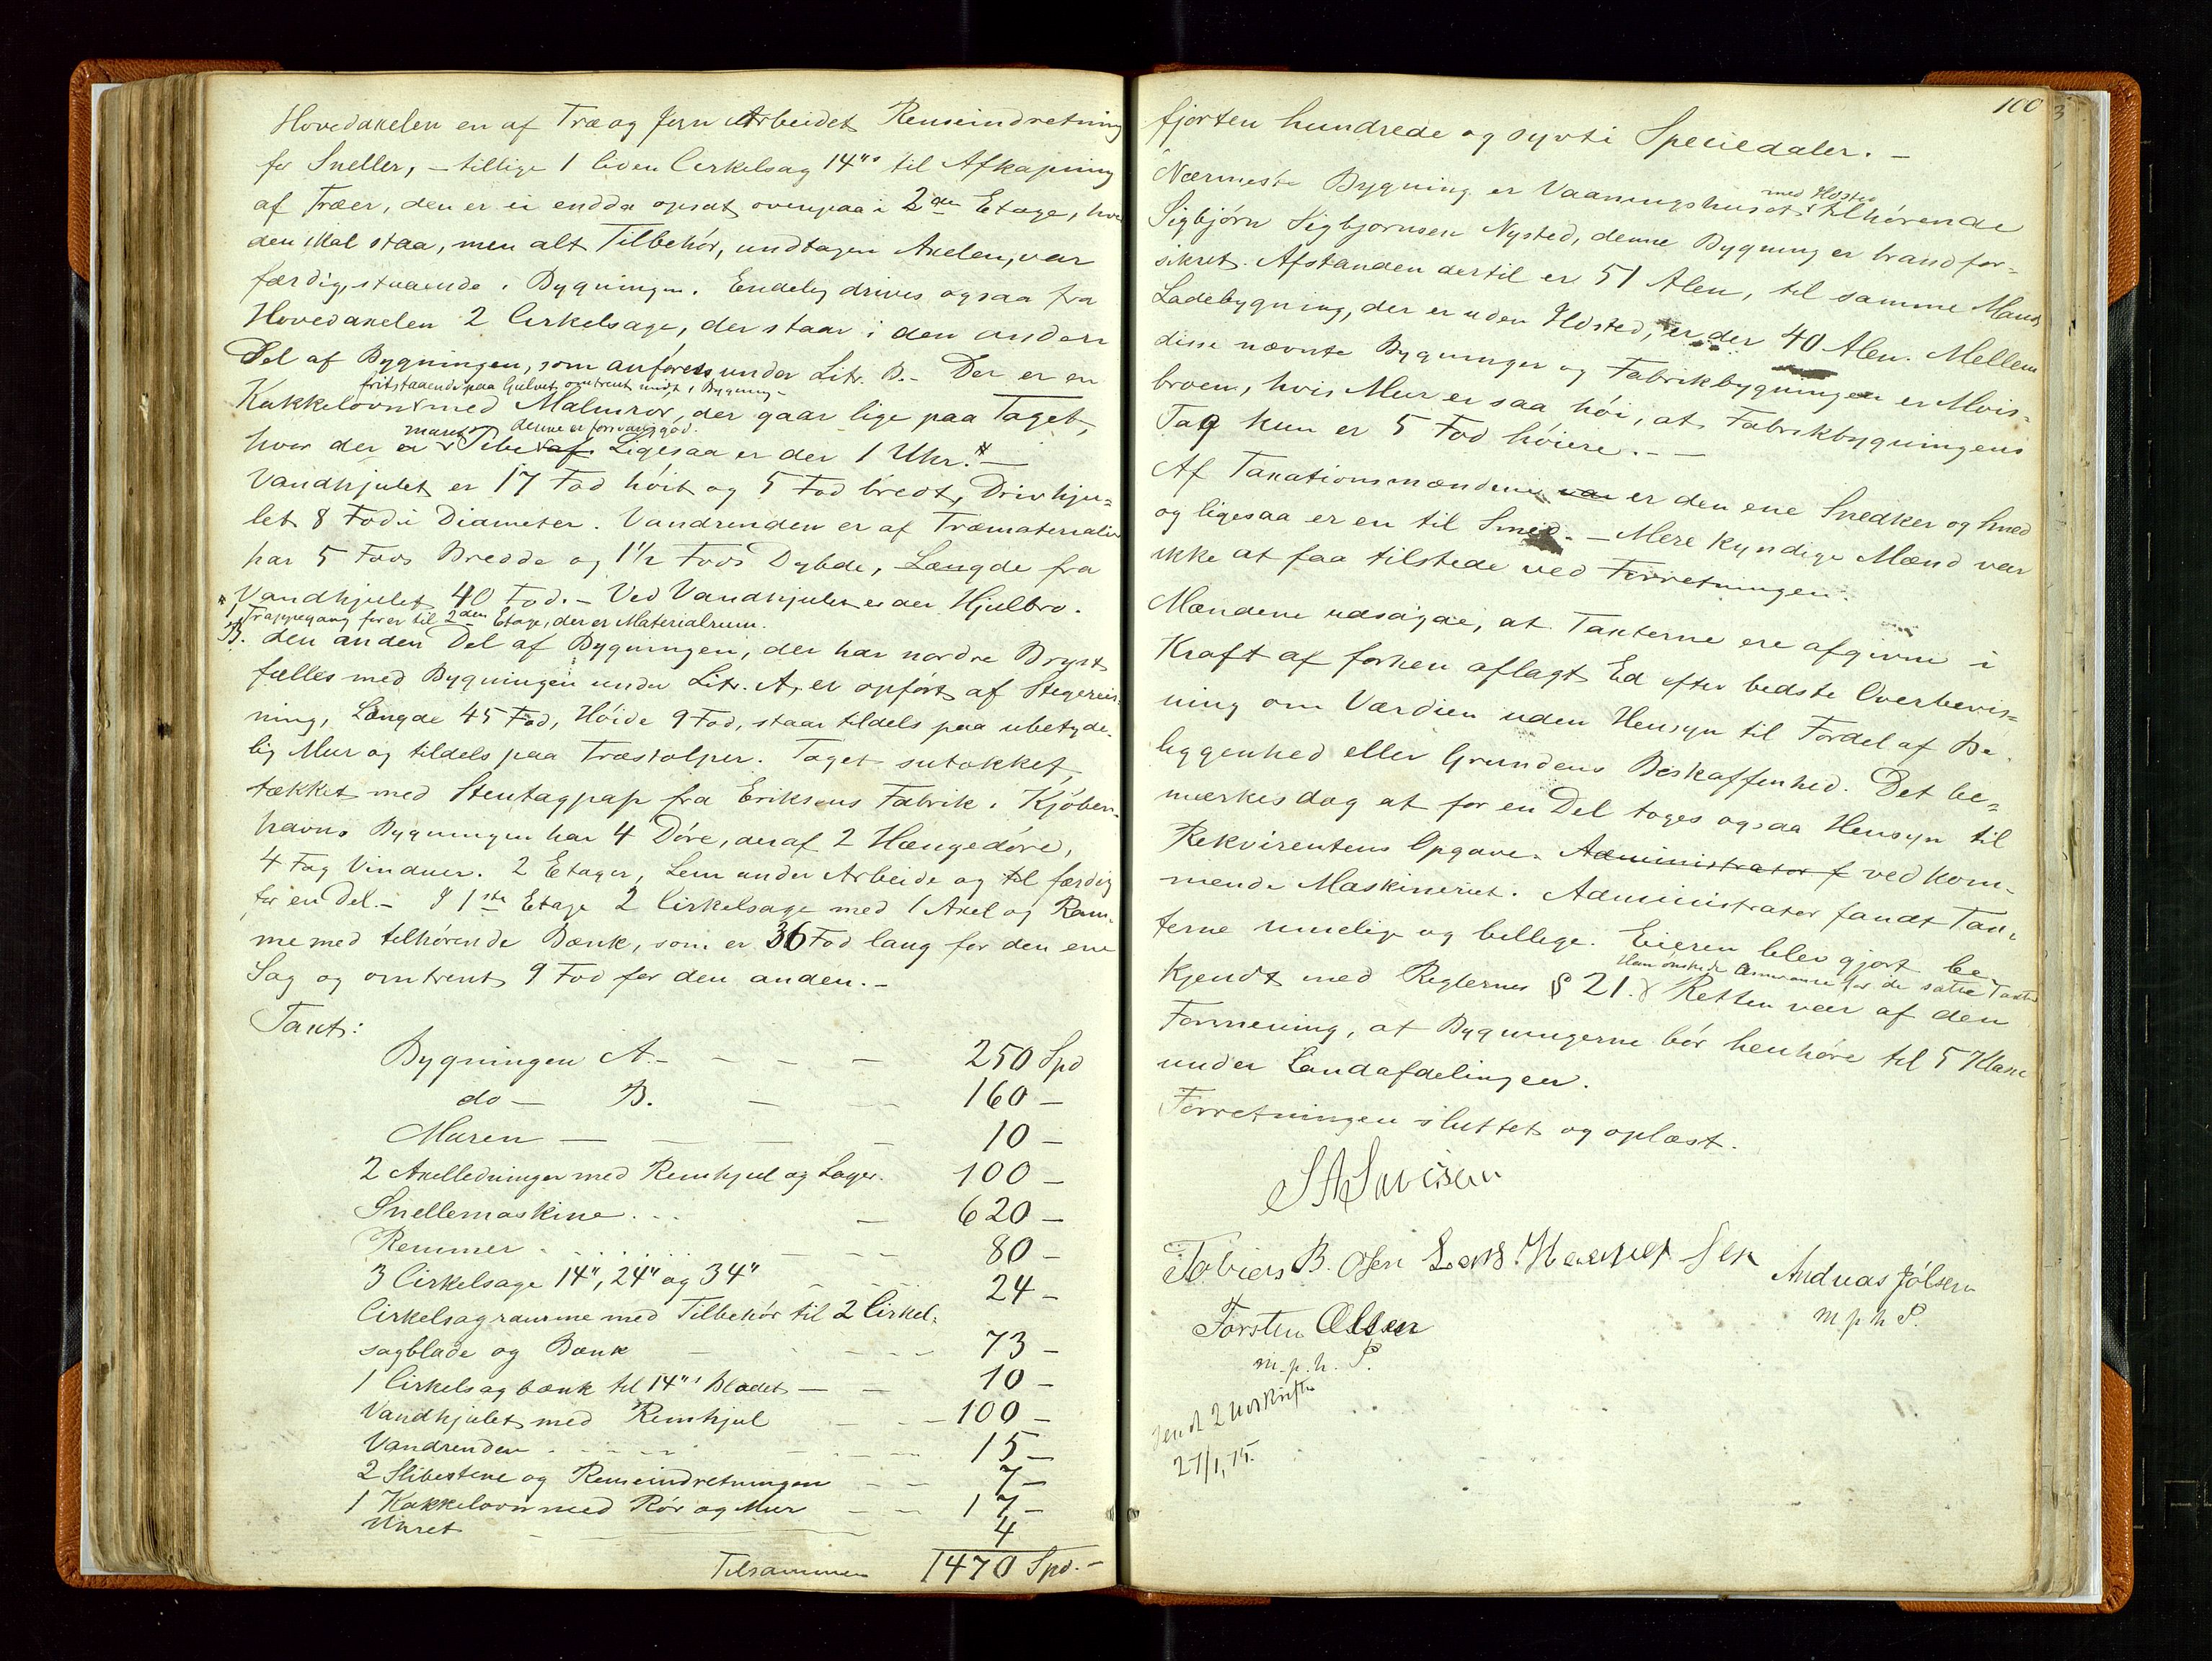 Hovedaxelen en af Træ og Jern Arbeidet Renseindretning
for Sneller, – tillige 1 liden Cirkelsag 14"s til Afkapning
af Træer, den er ei endda opsat ovenpaa i 2den Etage, hvor
den skal staa, men alt Tilbehør, undtagen Axelen, var
færdig, staaende i Bygningen. Endelig drives ogsaa fra
Hovedaxelen 2 Cirkelsage, der staar i den anden
Del af Bygningen, som anføres under Litr. B. – Der er en
fritstaaende paa Gulvet, omtrent midt i Bygning-
Kakkelovn med Malmrør, der gaar lige paa Taget,
muret denne er forsvarlig god.
hvor der er Pibe af Ligesaa er der 1 Uhr. * –
Vandhjulet er 17 Fod høit og 5 Fod bredt, Drivhju-
let 8 Fod i Diameter. Vandrenden er af Træmaterialier
har 5 Fods Bredde og 1½ Fods Dybde, Længde fra
Vandhjulet 40 Fod. – Ved Vandhjulet er der Hjulbro.
* 1 Trappegang fører til 2den Etage, der er Materialrum.
B. den anden Del af Bygningen, der har nordre Bryst
fælles med Bygningen under Litr. A, er opført af Stegereis-
ning, Længde 45 Fod, Høide 9 Fod, staar tildels paa ubetyde-
lig Mur og tildels paa Træstolper. Taget sutækket,
tækket med Stentagpap fra Eriksens Fabrik i Kjøben-
havn. Bygningen har 4 Døre, deraf 2 Hængedøre,
4 Fag Vinduer. 2 Etager, Lem under Arbeide og til færdig
for en Del. – I 1ste Etage 2 Cirkelsage med 1 Axel og Ram-
me med tilhørende Bænk, som er 36 Fod lang for den ene
Sag og omtrent 9 Fod for den anden. –
Taxt:
Bygningen A. – – – – 250 Spd
do – B. – – 160 –
Muren – – – 10 –
2 Axelledninger med Remhjul og Lager. 100 –
Snellemaskine . . . – 620 –
Remmer . . . . . – – – 80 –
3 Cirkelsage 14", 24" og 34" – – – 24 –
Cirkelsagramme med Tilbehør til 2 Cirkel-
sagblade og Bænk – – – – 73 –
1 Cirkelsagbænk til 14"s Bladet – – 10 –
Vandhjulet med Remhjul – – 100 –
Vandrenden . – – – – 15 –
2 Slibestene og Renseindretningen – – 7 –
1 Kakkelovn med Rør og Mur – – 17 –
Uhret – – 4
Tilsammen 1470 Spd. –
100
3
fjorten hundrede og sytti Speciedaler. –
med Ildsted
Nærmeste Bygning er Vaaningshuset tilhørende
Sigbjørn Sigbjørnsen Nysted, denne Bygning er brandfor-
sikret. Afstanden dertil er 51 Alen, til samme Mands
Ladebygning, der er uden Ildsted, er der 40 Alen. Mellem
disse nævnte Bygninger og Fabrikbygningen er Alvis-
broen, hvis Mur er saa høi, at Fabrikbygningens
Tag kun er 5 Fod høiere. – –
Af Taxationsmændene var er den ene Snedker og Smed
og ligesaa er en til Smed. – Mere kyndige Mænd var
ikke at faa tilstede ved Forretningen.
Mændene udsagde, at Taxterne ere afgivne i
Kraft af forhen aflagt Ed efter bedste Overbevis-
ning om Værdien uden Hensyn til Fordel af Be-
liggenhed eller Grundens Beskaffenhed. Det be-
mærkes dog at for en Del toges ogsaa Hensyn til
Rekvirentens Opgave. Administrator f vedkom-
mende Maskineriet. Administrator fandt Tax-
terne rimelige og billige. Eieren blev gjort be-
Han ønskede Assurance for de satte Taxter
kjendt med Reglernes § 21. Retten var af den
Formening, at Bygningerne bør henhøre til 5 Klasse
under Landafdelingen.
Forretningen sluttet og oplæst.
Tobias B. Osen Lars Hansen
Andreas Jølsen
m p h P.
Torsten Olsen
m. p. h. P.
Sendt 2 Udskrifter
27/1, 75.